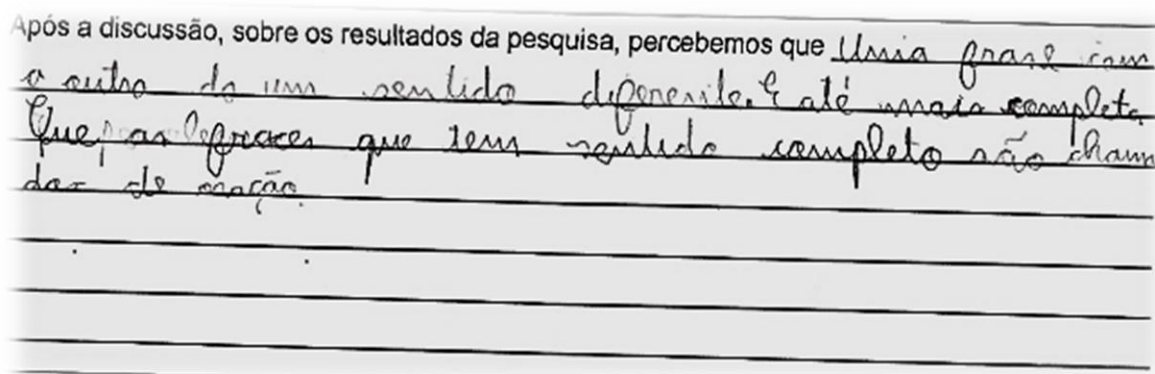 Após a discussão, sobre os resultados da pesquisa, percebemos que Uma frase com
a outra da um sentido diferente. E até mais completa
Que, as fraces que tem sentido completo são chama
das de oração.